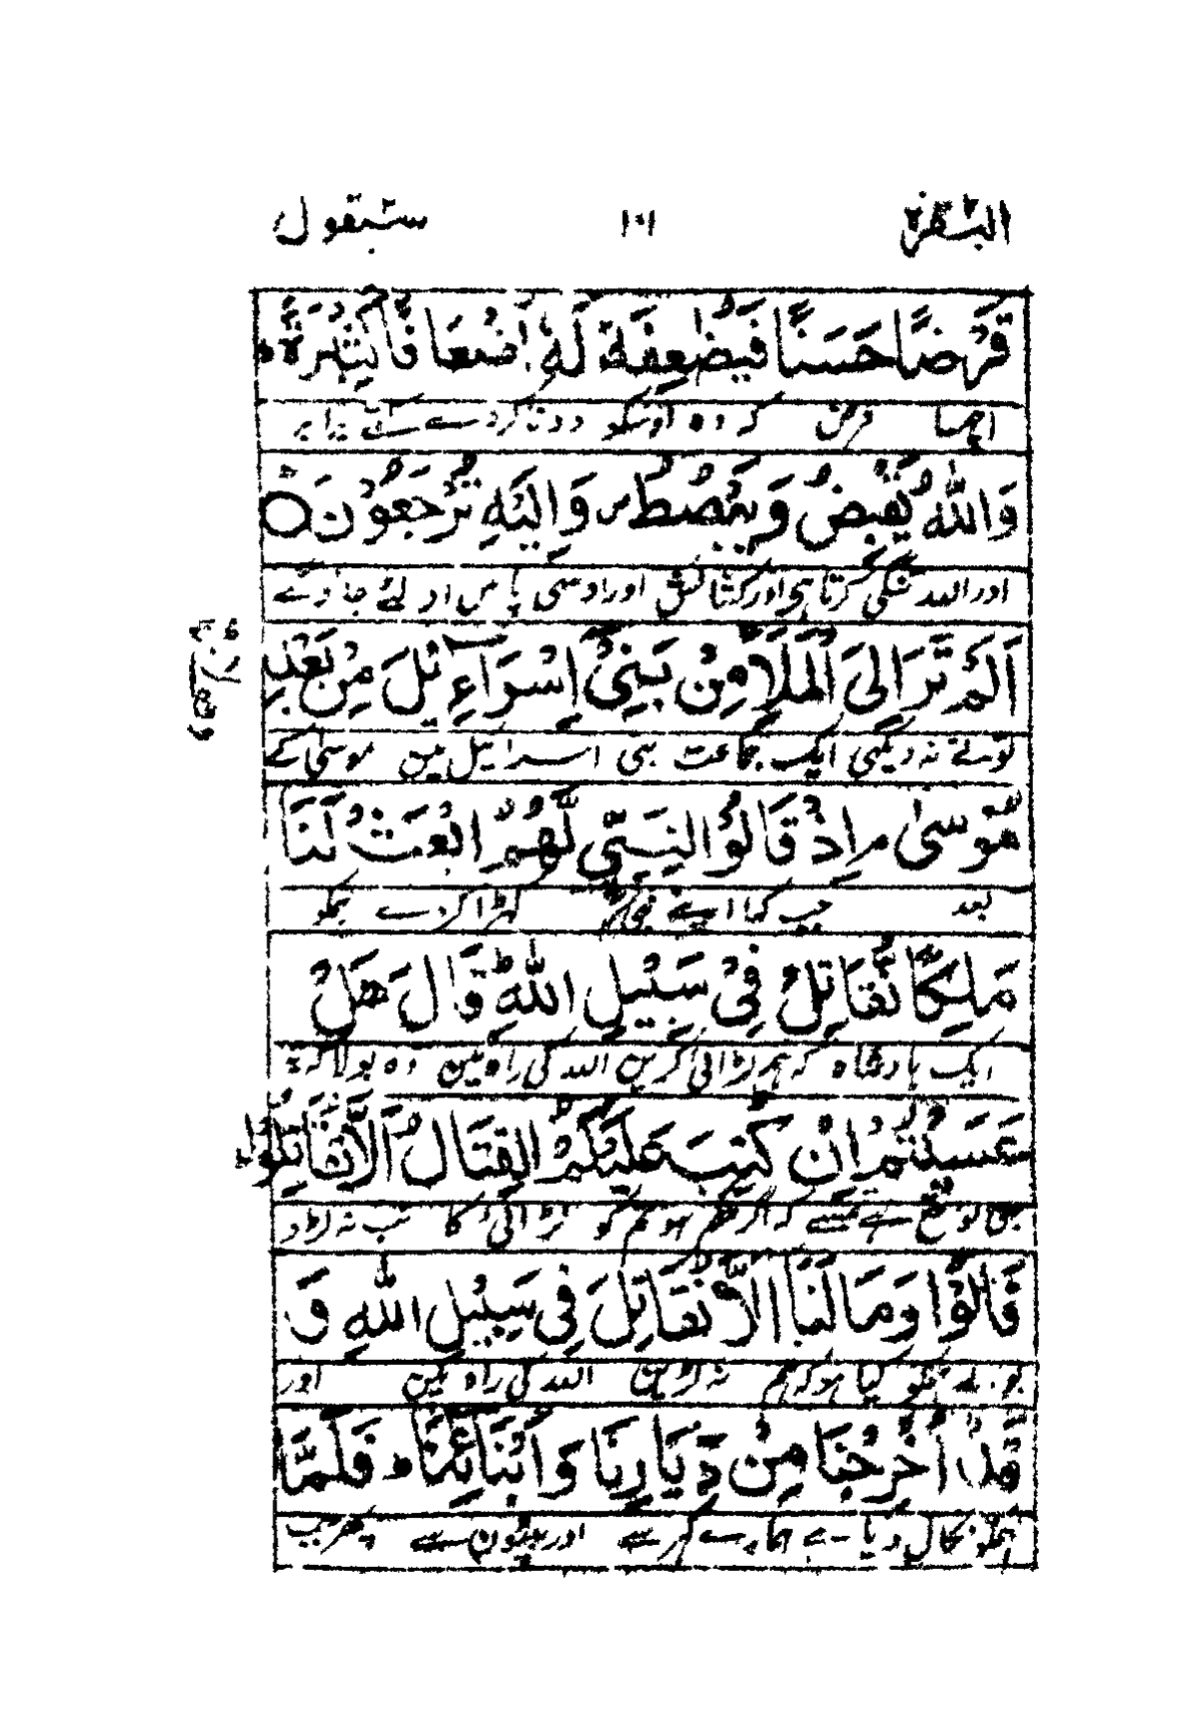 البقرة ۱۰۱ سیقول
قَرْضًا حَسَنًا فَيُضٰعِفَهٗ لَهٗۤ اَضْعَافًا كَثِيْرَةً ؕ
اچھا قرض کہ وہ اوسکو دونا کردے کتے برابر
وَاللّٰهُ يَقْبِضُ وَيَبْصُۜطُ ۪ وَاِلَيْهِ تُرْجَعُوْنَ
اور اللہ تنگی کرتا ہی اور کشائش اور اوسی پاس اولٹے جاؤگے
اَلَمْ تَرَ اِلَى الْمَلَاِ مِنْۢ بَنِيْۤ اِسْرَآءِيْلَ مِنْۢ بَعْدِ
تونے نہ دیکھی ایک جماعت بنی اسرائیل مین موسیٰ کے
مُوْسٰى ۘ اِذْ قَالُوْا لِنَبِيٍّ لَّهُمُ ابْعَثْ لَنَا
بعد جب کہا اپنے نبی کو کھڑا کردے ہمکو
مَلِكًا نُّقَاتِلْ فِيْ سَبِيْلِ اللّٰهِ ؕ قَالَ هَلْ
ایک بادشاہ کہ ہم لڑائی کرین اللہ کی راہ مین وہ بولا کہ
عَسَيْتُمْ اِنْ كُتِبَ عَلَيْكُمُ الْقِتَالُ اَلَّا تُقَاتِلُوْا
بھی توقع ہے تمسے کہ اگر حکم ہو تم کو لڑائی کا تب نہ لڑو
قَالُوْا وَمَا لَنَاۤ اَلَّا نُقَاتِلَ فِيْ سَبِيْلِ اللّٰهِ وَ
بولے ہمکو کیا ہو کہ ہم نہ لڑین اللہ کی راہ مین اور
قَدْ اُخْرِجْنَا مِنْ دِيَارِنَا وَاَبْنَآئِنَا ؕ فَلَمَّا
ہمکو نکال دیا ہے ہمارے گھر سے اور بیٹون سے پھر جب